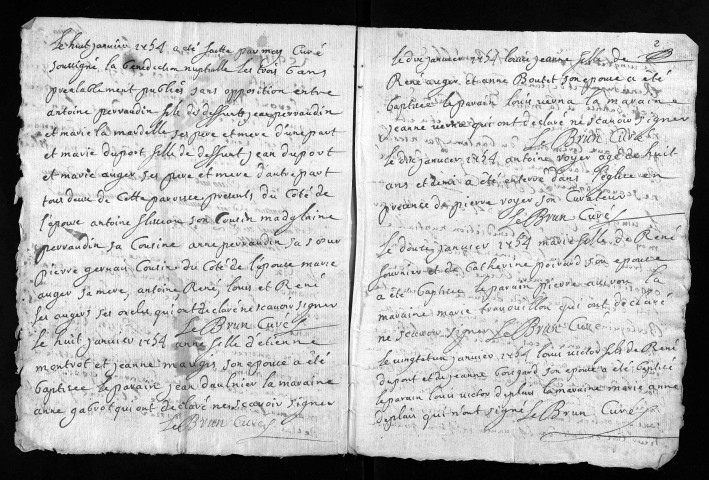 Le huit janvier 1754 a été faitte par moy Curé
soussigné la benediction nuptialle les trois bans
prealablement publiés sans opposition entre
antoine perraudin fils de deffunts jean perraudin
et marie la mardelle ses pere et mere d'une part
et marie duport fille de deffunt jean duport
et marie auger ses pere et mere d'autre part
tous deux de Cette paroisse presents du Coté de
l'epoux antoine son Cousin madglaine
perraudin sa Cousine anne perraudin sa sœur
pierre gernau Cousin du Coté de l'epouse marie
auger sa mere, antoine René, louis et René
les augers ses oncles, qui ont declaré ne scavoir signer
Le Brun Curé
le huit janvier 1754 anne fille d'etienne
montrot et jeanne maugis son epouce a été
baptisée le parain jean daulnier la maraine
anne gabrot qui ont declaré ne scavoir signer
Le Brun Curé
2
le dix janvier 1754 louise jeanne fille de
René auger et anne Boutet son epouce a été
baptisée le parain louis verna la maraine
jeanne verna qui ont declaré ne scavoir signer
Le Brun Curé
le dix janvier 1754 antoine voyer agé de huit
ans et demi a été enterré dans l'eglise en
presence de pierre voyer son Curateur
Le Brun Curé
Le douze janvier 1754 marie fille de René
fournier et de Catherine poirard son epouce
a été baptisée le parain pierre auvron la
maraine marie travouillon qui ont declaré
ne scavoir signer Le Brun Curé
le vingt et un janvier 1754 louis victor fils de René
dupont et de jeanne bougard son epouce a été baptisé
le parain louis victor deplaix la maraine marie anne
deplaix qui n'ont signé Le Brun Curé